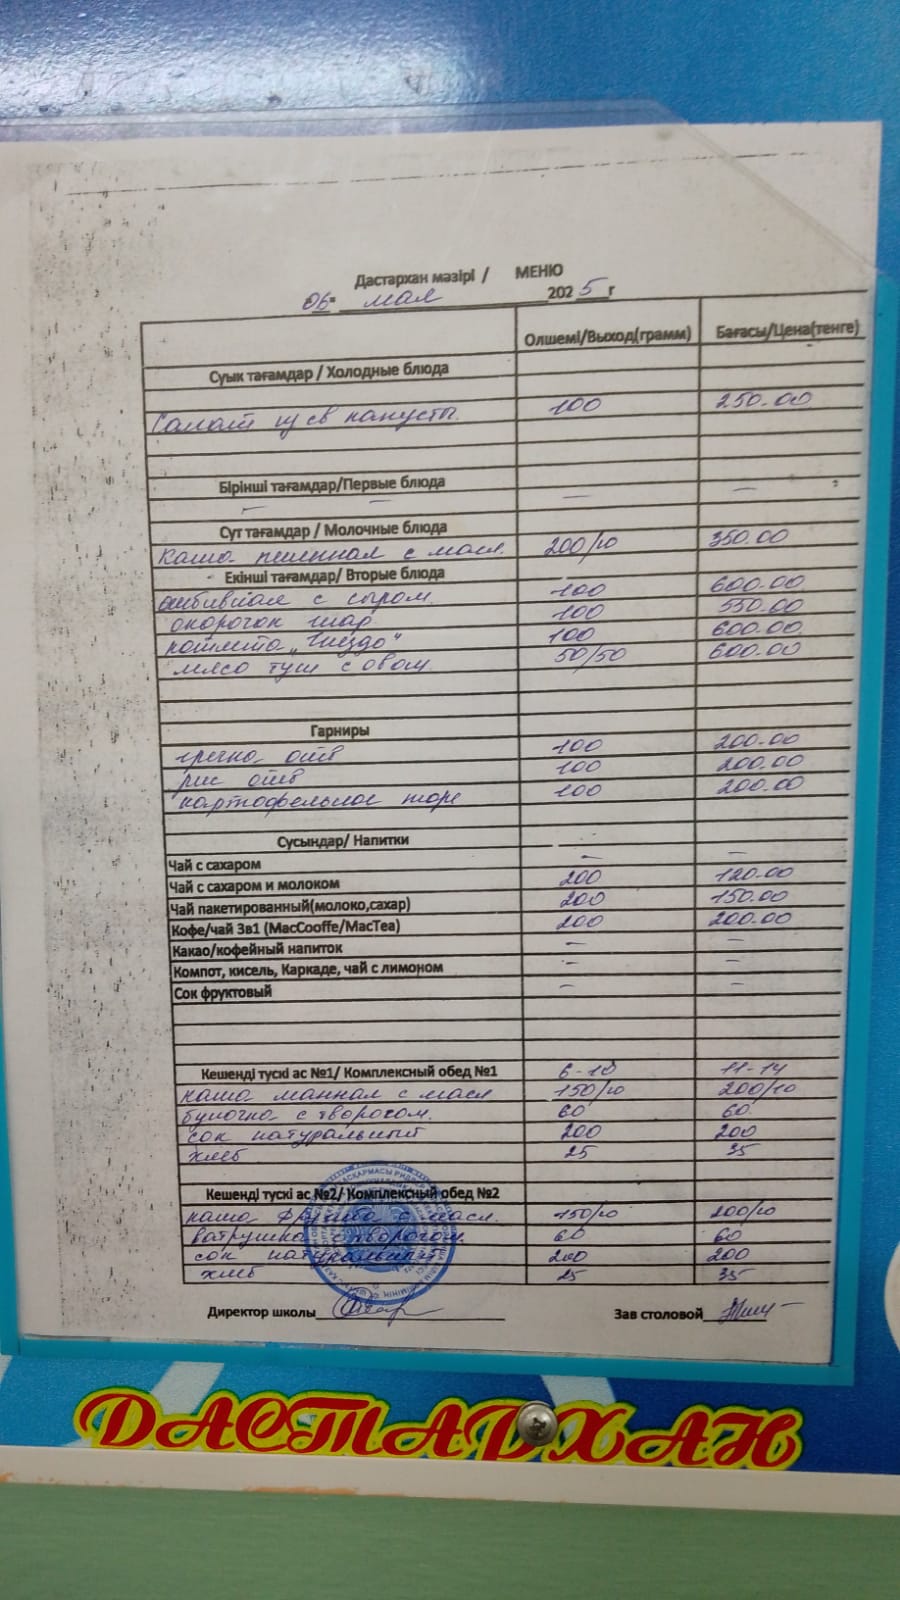 Дастархан мәзірі / МЕНЮ
06 мая 2025 г
Олшемі/Выход(грамм) Бағасы/Цена(тенге)
Суык тағамдар / Холодные блюда
Салат из св капусты. 100 250.00
Бірінші тағамдар/Первые блюда
— — — —
Сут тағамдар / Молочные блюда
каша пшенная с масл. 200/10 350.00
Екінші тағамдар/ Вторые блюда
отбивная с сыром. 100 600.00
окорочок жар 100 550.00
котлета "Гнездо" 100 600.00
мясо туш с овощ. 50/50 600.00
Гарниры
гречка отв 100 200.00
рис отв 100 200.00
картофельное пюре 100 200.00
Сусындар/ Напитки
Чай с сахаром — —
Чай с сахаром и молоком 200 120.00
Чай пакетированный(молоко,сахар) 200 150.00
Кофе/чай 3в1 (MacCooffe/MacTea) 200 200.00
Какао/кофейный напиток — —
Компот, кисель, Каркаде, чай с лимоном — —
Сок фруктовый — —
Кешенді тускі ас №1/ Комплексный обед №1 6-10 11-14
каша манная с масл 150/10 200/10
булочка с творогом. 60 60
сок натуральный 200 200
хлеб 25 35
Кешенді тускі ас №2/ Комплексный обед №2
каша Дружба с масл. 150/10 200/10
ватрушка с творогом. 60 60
сок натуральный 200 200
хлеб 25 35
Директор школы Зав столовой
ДАСТАРХАН